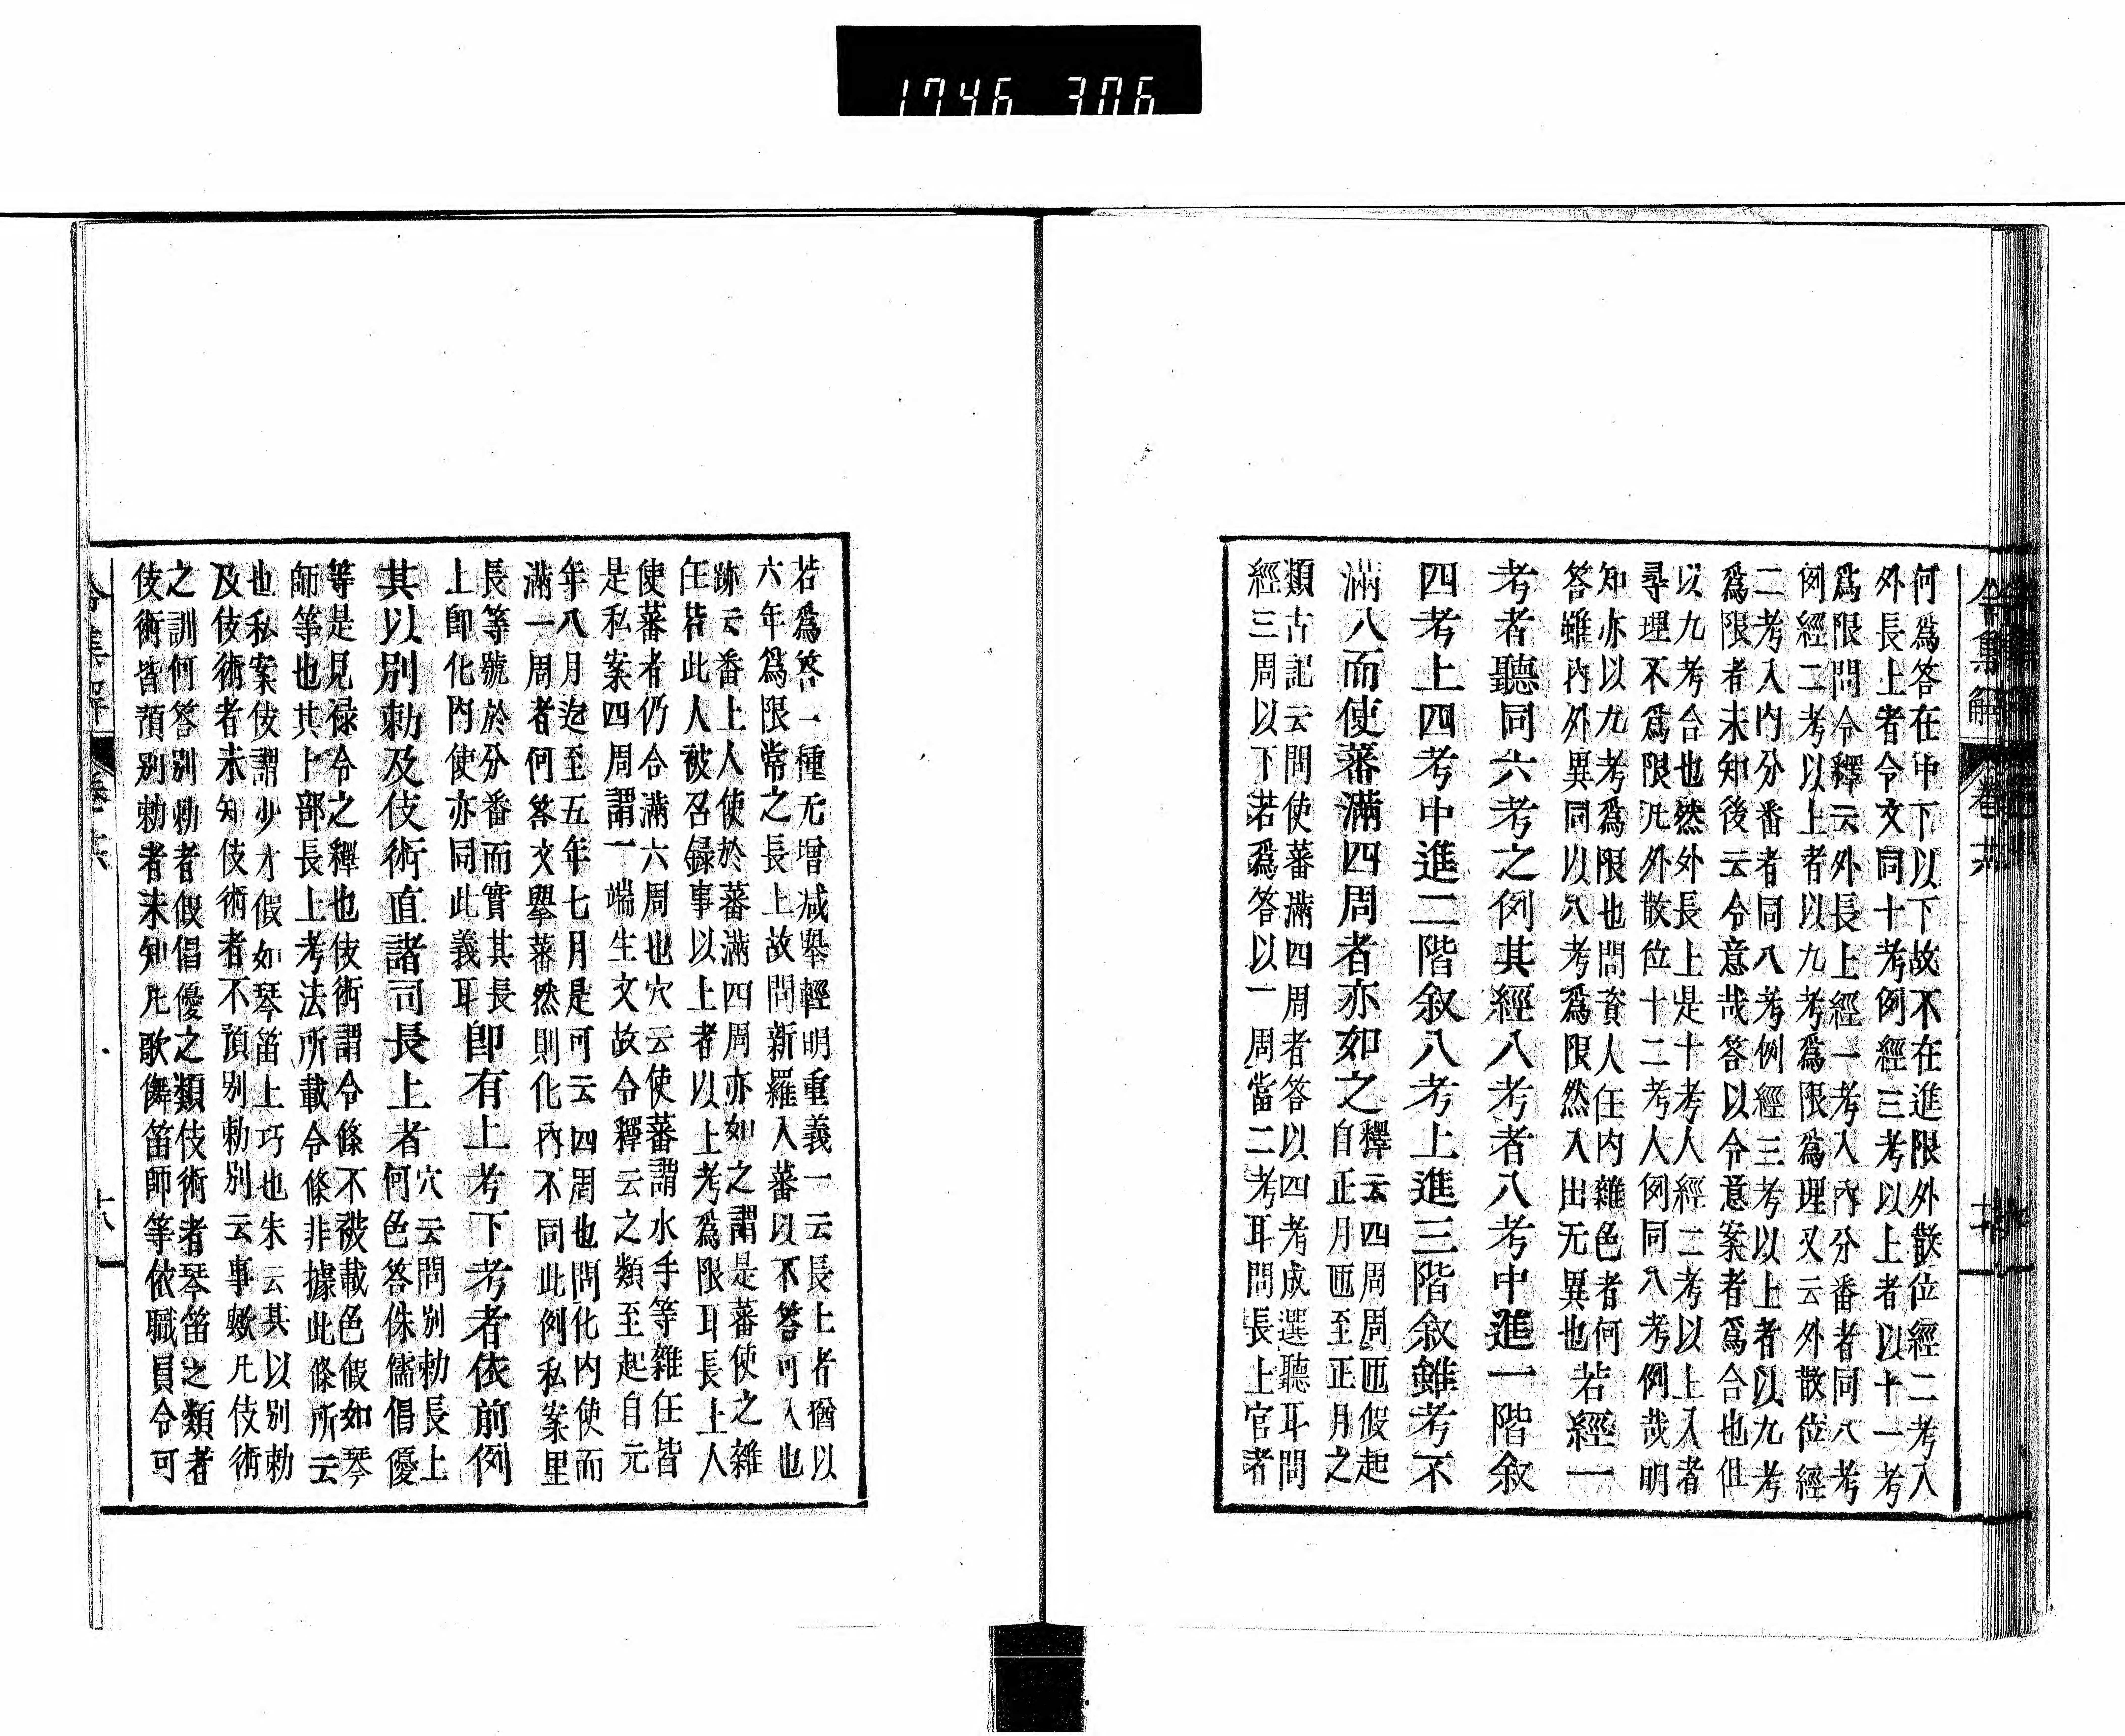 1746 306
令集解
何爲答在中下以下故不在進限外散位經二考入
外長上者令文同十考例經三考以上者以十一考
爲限問令釋云外長上經一考入內分番者同八考
例經二考以上者以九考爲限爲理又云外散位經
二考入内分番者同八考例經三考以上者以九考
爲限者未知後云令意哉答以令意案者爲合也但
以九考合也然外長上是十考人經二考以上入者
尋理不爲限凡外散位十二考人例同八考例哉明
知亦以九考爲限也問資人任内雜色者何
答雖內外異同以八考爲限然入出无異也
若經一
考者聽同六考之例其經八考者八考中進一階叙
四考上四考中進二階叙八考上進三階叙雖考不
滿八而使蕃滿四周者亦如之
釋云四周周匝假起
自正月匝至正月之
類古記云問使蕃滿四周者答以四考成選聽耳問
經三周以下若爲答以一周當二考耳問長上官者
若爲答一種无增减舉輕明重義一云長上者猶以
六年爲限常之長上故問新羅人蕃以不答可入也
跡云番上人使於蕃滿四周亦如之謂是蕃使之雜
任若此人被召録事以上者以上考爲限耳長上人
使蕃者仍合滿六周也穴云使蕃謂水手等雜任皆
是私案四周謂一端生文故令釋云之類至起自元
年八月迄至五年七月是可云四周也問化内使而
滿一周者何答文擧蕃然則化內不同此例私案里
長等號於分番而實其長
上卽化內使亦同此義耳
卽有上考下考者依前例
其以別勅及伎術直諸司長上者
穴云問別勅長上
何色答侏儒倡優
等是見禄令之釋也伎術謂令條不被載色假如琴
師等也其卜部長上考法所載令條非據此條所云
也私案伎謂少才假如琴笛上巧也朱云其以別勅
及伎術者未知伎術者不預別勅別云事歟凡伎術
之訓何答別勅者假倡優之類伎術者琴笛之類者
伎術皆預別勅者未知凡歌儛笛師等依職員令可